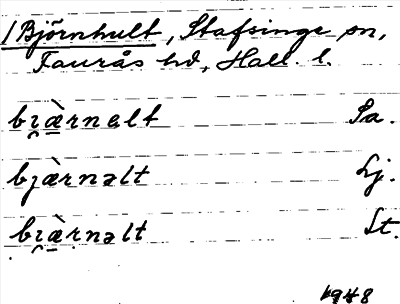 1 Björnhult, Stafsinge sn,
Faurås hd, Hall. l.
bi̯æ̀rnəlt Sa.
bjæ̀rnəlt Lj.
bi̯æ̀rnəlt St.
1948